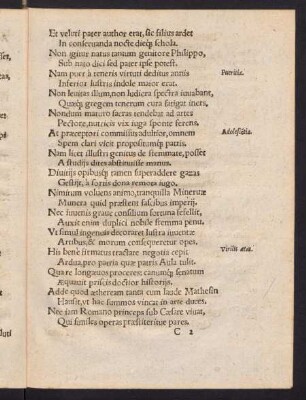 Et veluti pater author erat, sic filius ardet
In conseruanda nocte dieq́; schola.
Non ignur natus tantum genitore Philippo,
Sub nato dici sed pater ipse potest.
Nam puer à teneris virtuti deditus annis
Pueritia.
Inferior lustris indole maior erat.
Non leuium illum, non ludicra spectra iuuabant,
Quæq́; gregem tenerum cura fatigat iners,
Nondum maturo sacras tendebat ad artes
Pectore, nutricis vix iuga sponte ferens.
At præceptori commissus adultior, omnem
Adolescētia.
Spem clari vicit propositumq́; patris.
Nam licet illustri genitus de stemmate, posset
A studijs dites abstinuisse manus
Diuitijs opibusq́; ramen superaddere gazas
Gestijt, à fortis dona remota iugo.
Nimirum voluens animo, tranquilla Mineruæ
Munera quid præstent fascibus imperij.
Nec iuuenis graue consilium fortuna fefellit,
Auxit enim duplici nobile stemma penu.
Vt simul ingenuis decoraret lustra iuuentæ
Artibus, & morum consequeretur opes.
His benè firmatus tractare negotia cepit
Virilis ætas.
Ardua, pro patria quæ patris Aula tulit.
Qua re longæuos proceres canumq́; senatum
Æquauit priscis doctior historijs.
Adde quod ætheream tanta cum laude Mathesin
Hausit, vt hac summos vincat in arte duces.
Nec iam Romano princeps sub Cæsare viuat,
Qui similes operas præstiteritue pares.
C 2